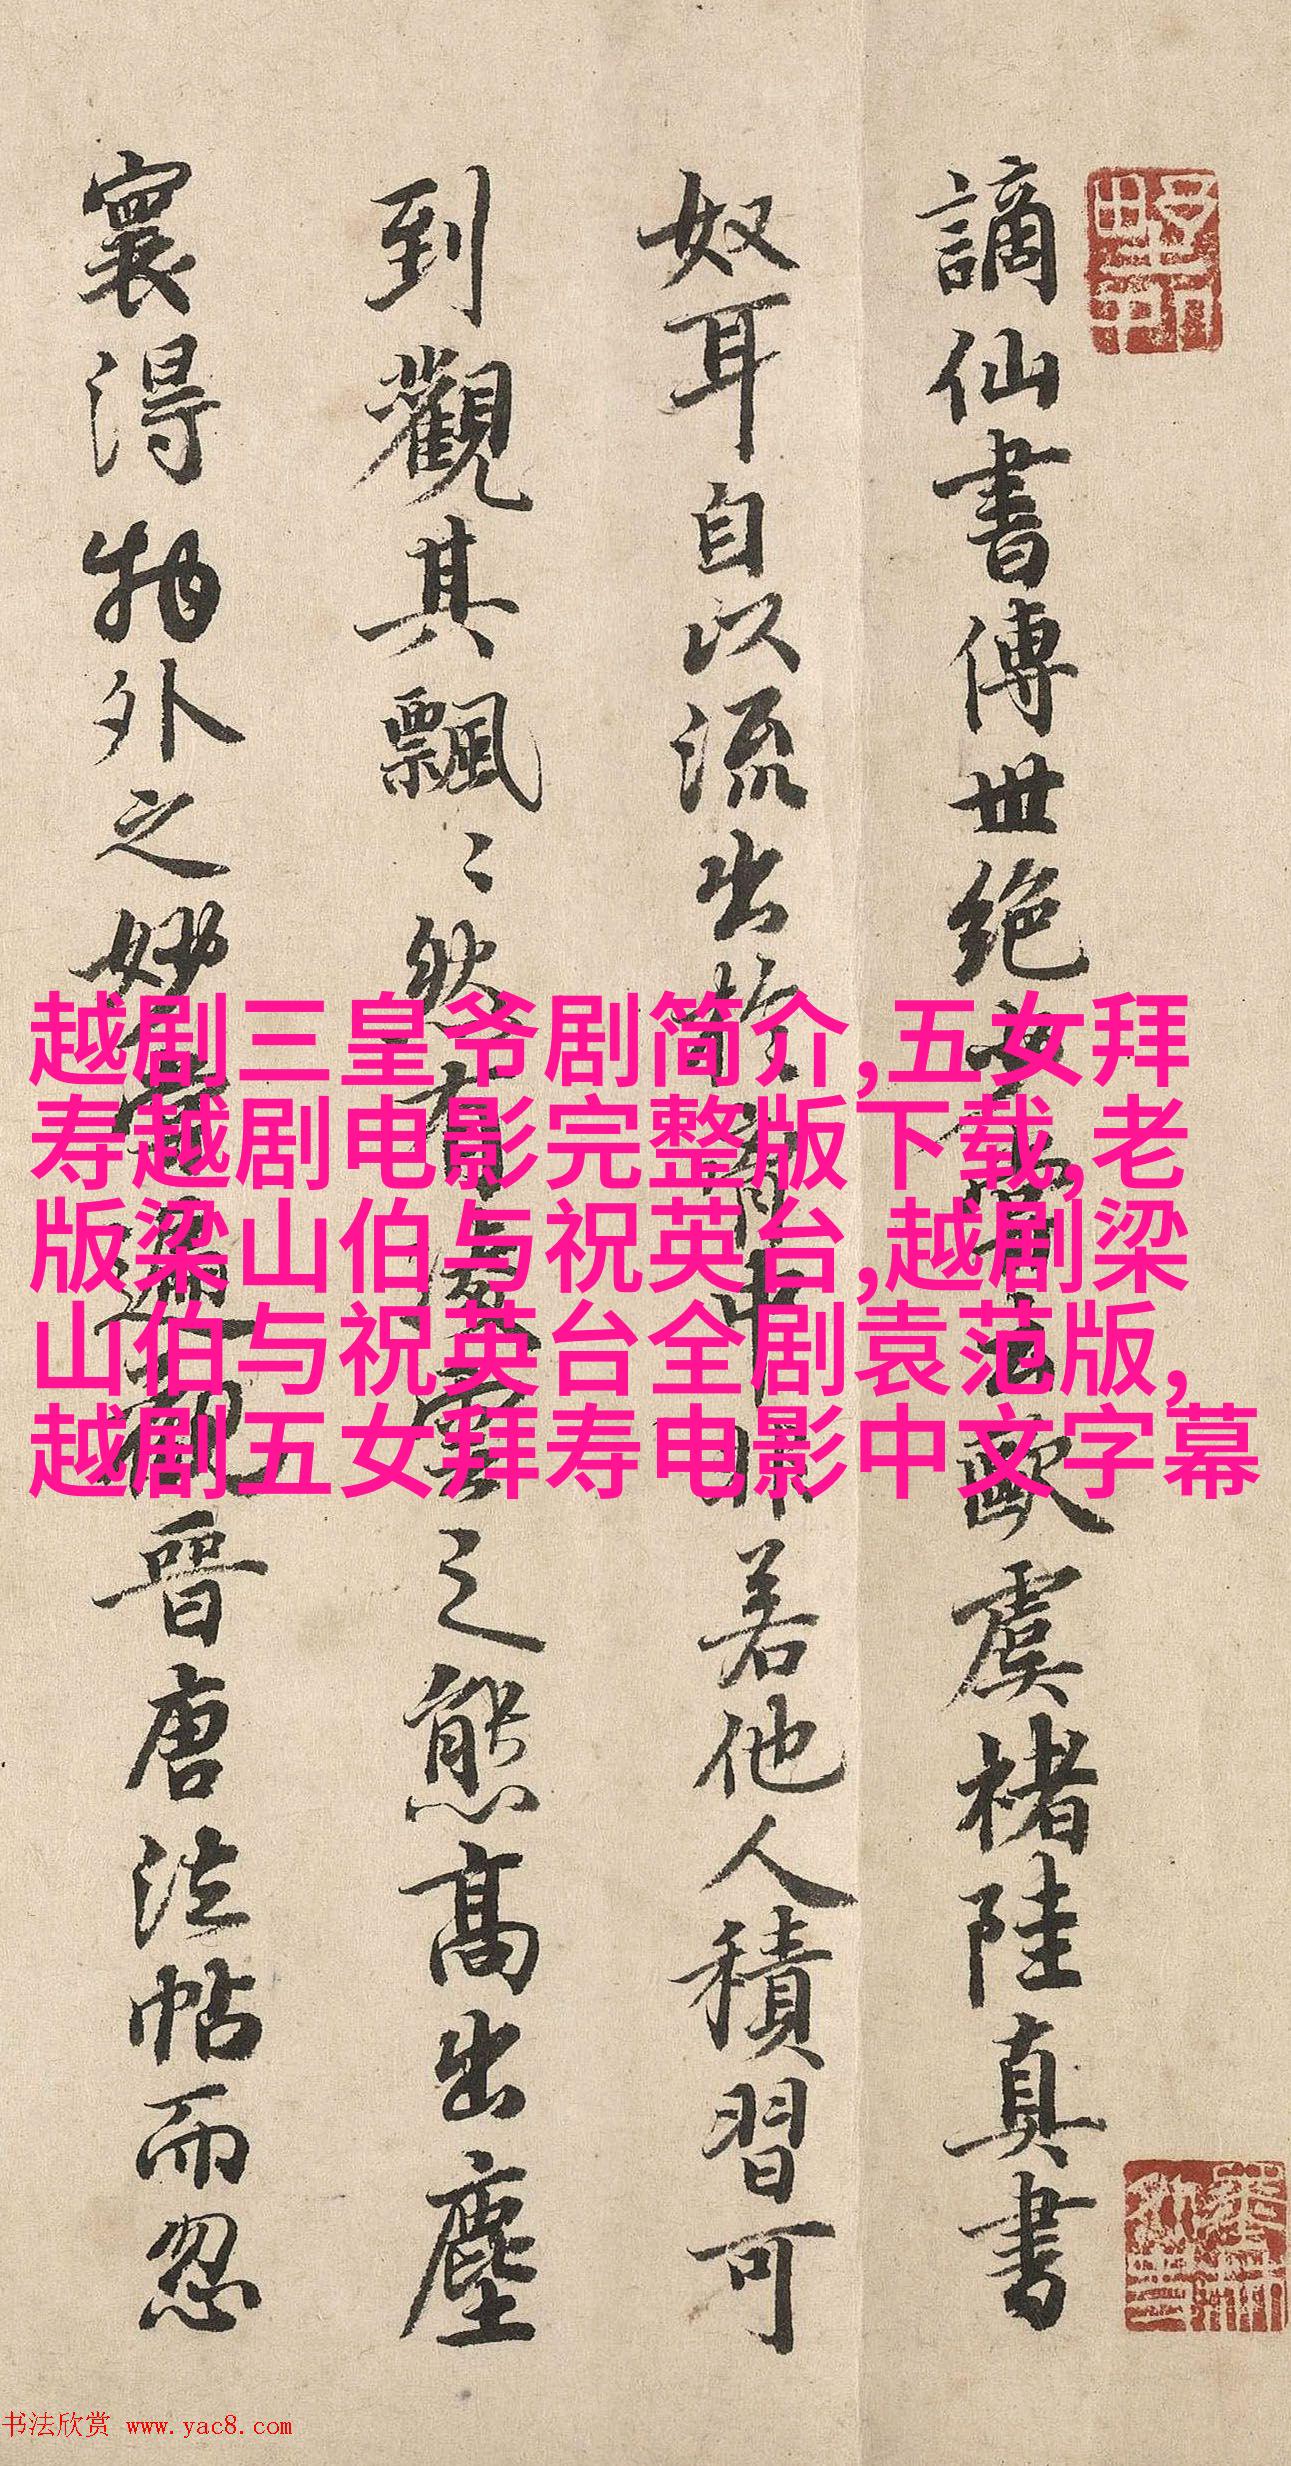 謫仙書傳世絕
歐虞褚陸真書
奴耳自以流出於胸中
若他人積習可
到觀其飄〻然有凌雲之態高出塵
寰得物外之妙
晉唐法帖而忽
越剧三皇爷剧简介,五女拜
寿越剧电影完整版下载,老
版梁山伯与祝英台,越剧梁
山伯与祝英台全剧袁范版,
越剧五女拜寿电影中文字幕
书法欣赏 www.yac8.com